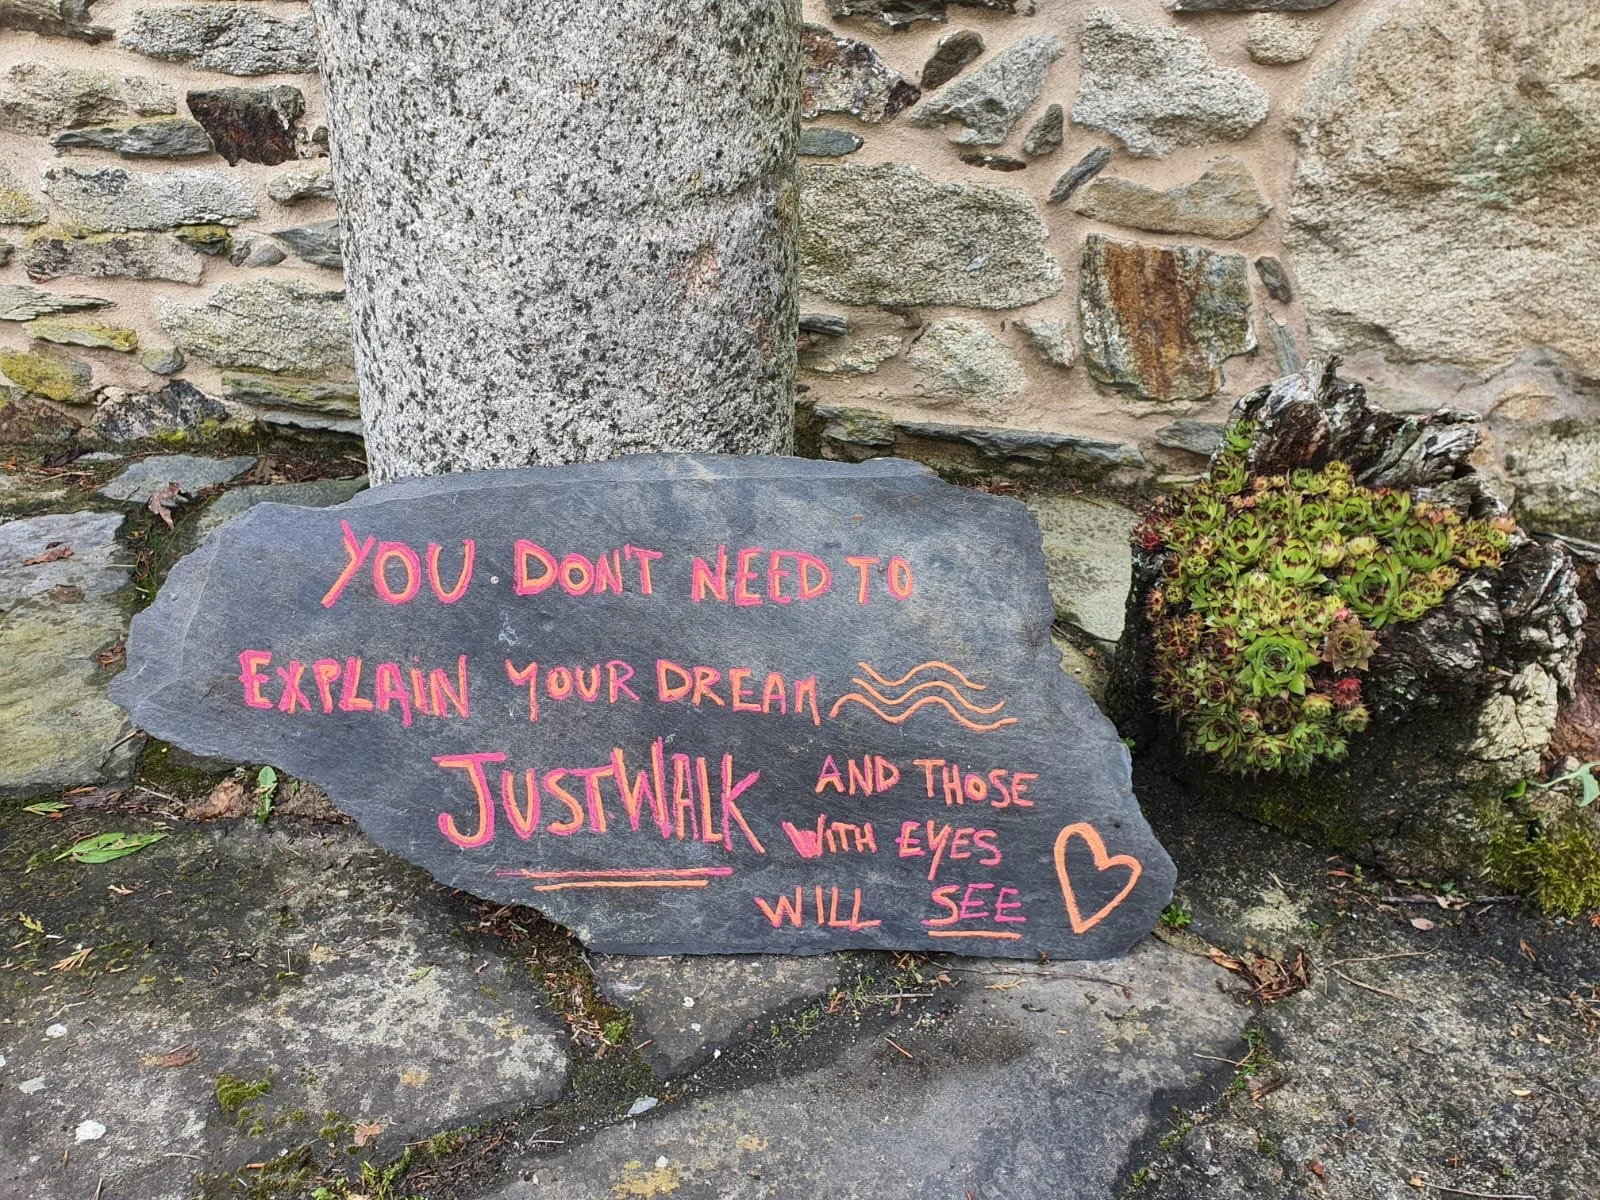 YOU DON'T NEED TO
EXPLAIN YOUR DREAM
JUST WALK AND THOSE
WITH EYES
WILL SEE